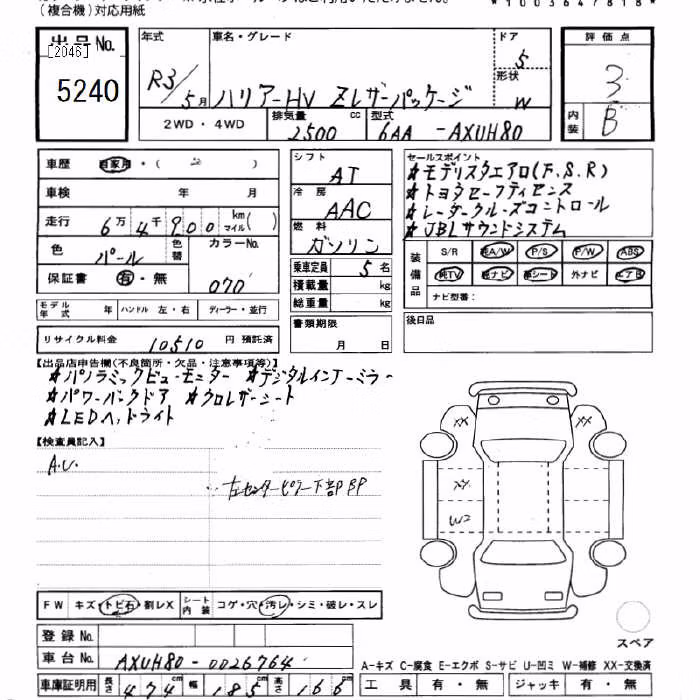 (複合機)対応用紙
*1003647818*
出品No.
[2046]
5240
年式 車名・グレード ドア 5
R3/5月 ハリアーHV Zレザーパッケージ 形状 W
2WD・4WD 排気量 2500 cc 型式 6AA -AXUH80
評価点
3
内装 B
車歴 自家用・( )
車検 年 月
走行 6万4千900 km マイル( )
色 パール 色替 カラーNo. 070
保証書 有・無
モデル年式 年 ハンドル 左・右 ディーラー・並行
リサイクル料金 10510 円 預託済
シフト
AT
冷房
AAC
燃料
ガソリン
乗車定員 5名
積載量 kg
総重量 kg
書類期限
月 日
セールスポイント
★モデリスタエアロ(F.S.R)
★トヨタセーフティセンス
★レーダークルーズコントロール
★JBLサウンドシステム
装備品 S/R 純A/W P/S P/W ABS
純TV 純ナビ 革シート 外ナビ エアB
ナビ型番:
後日品
【出品店申告欄(不良箇所・欠品・注意事項等)】
★パノラミックビューモニター ★デジタルインナーミラー
★パワーバックドア ★クロレザーシート
★LEDヘッドライト
【検査員記入】
A.U.
左センターピラー下部BP
XX XX
XX
W2
FW キズ・トビ石・割レX シート内装 コゲ・穴・汚レ・シミ・破レ・スレ
スペア
登録No.
車台No. AXUH80-0026764
車庫証明用 長さ 474cm 幅 185cm 高さ 166cm
A-キズ C-腐食 E-エクボ S-サビ U-凹ミ W-補修 XX-交換済
工具 有・無 ジャッキ 有・無